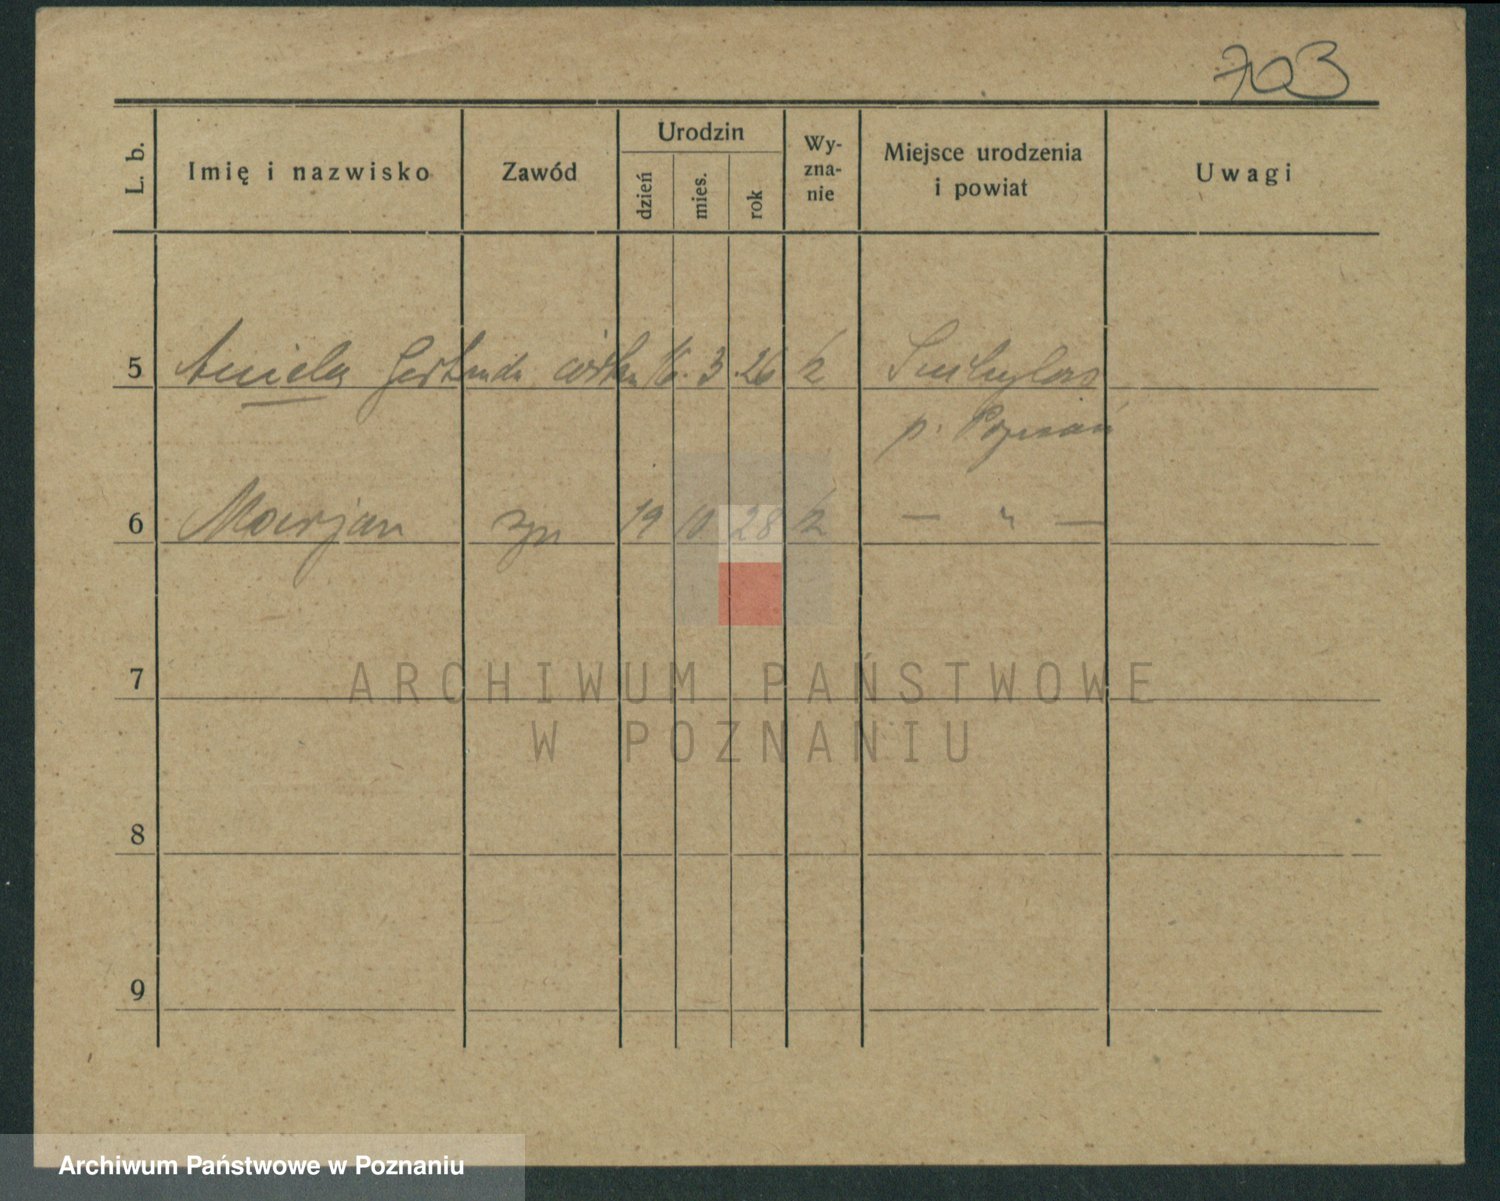 703
L. b.
Imię i nazwisko
Zawód
Urodzin
dzień
mies.
rok
Wy-
zna-
nie
Miejsce urodzenia
i powiat
Uwagi
5 Aniela Gertruda córka 16. 3 .26 k
p. Poznań
6 Marjan syn 19 10 28 k — " —
7
8
9
ARCHIWUM PAŃSTWOWE
W POZNANIU
Archiwum Państwowe w Poznaniu